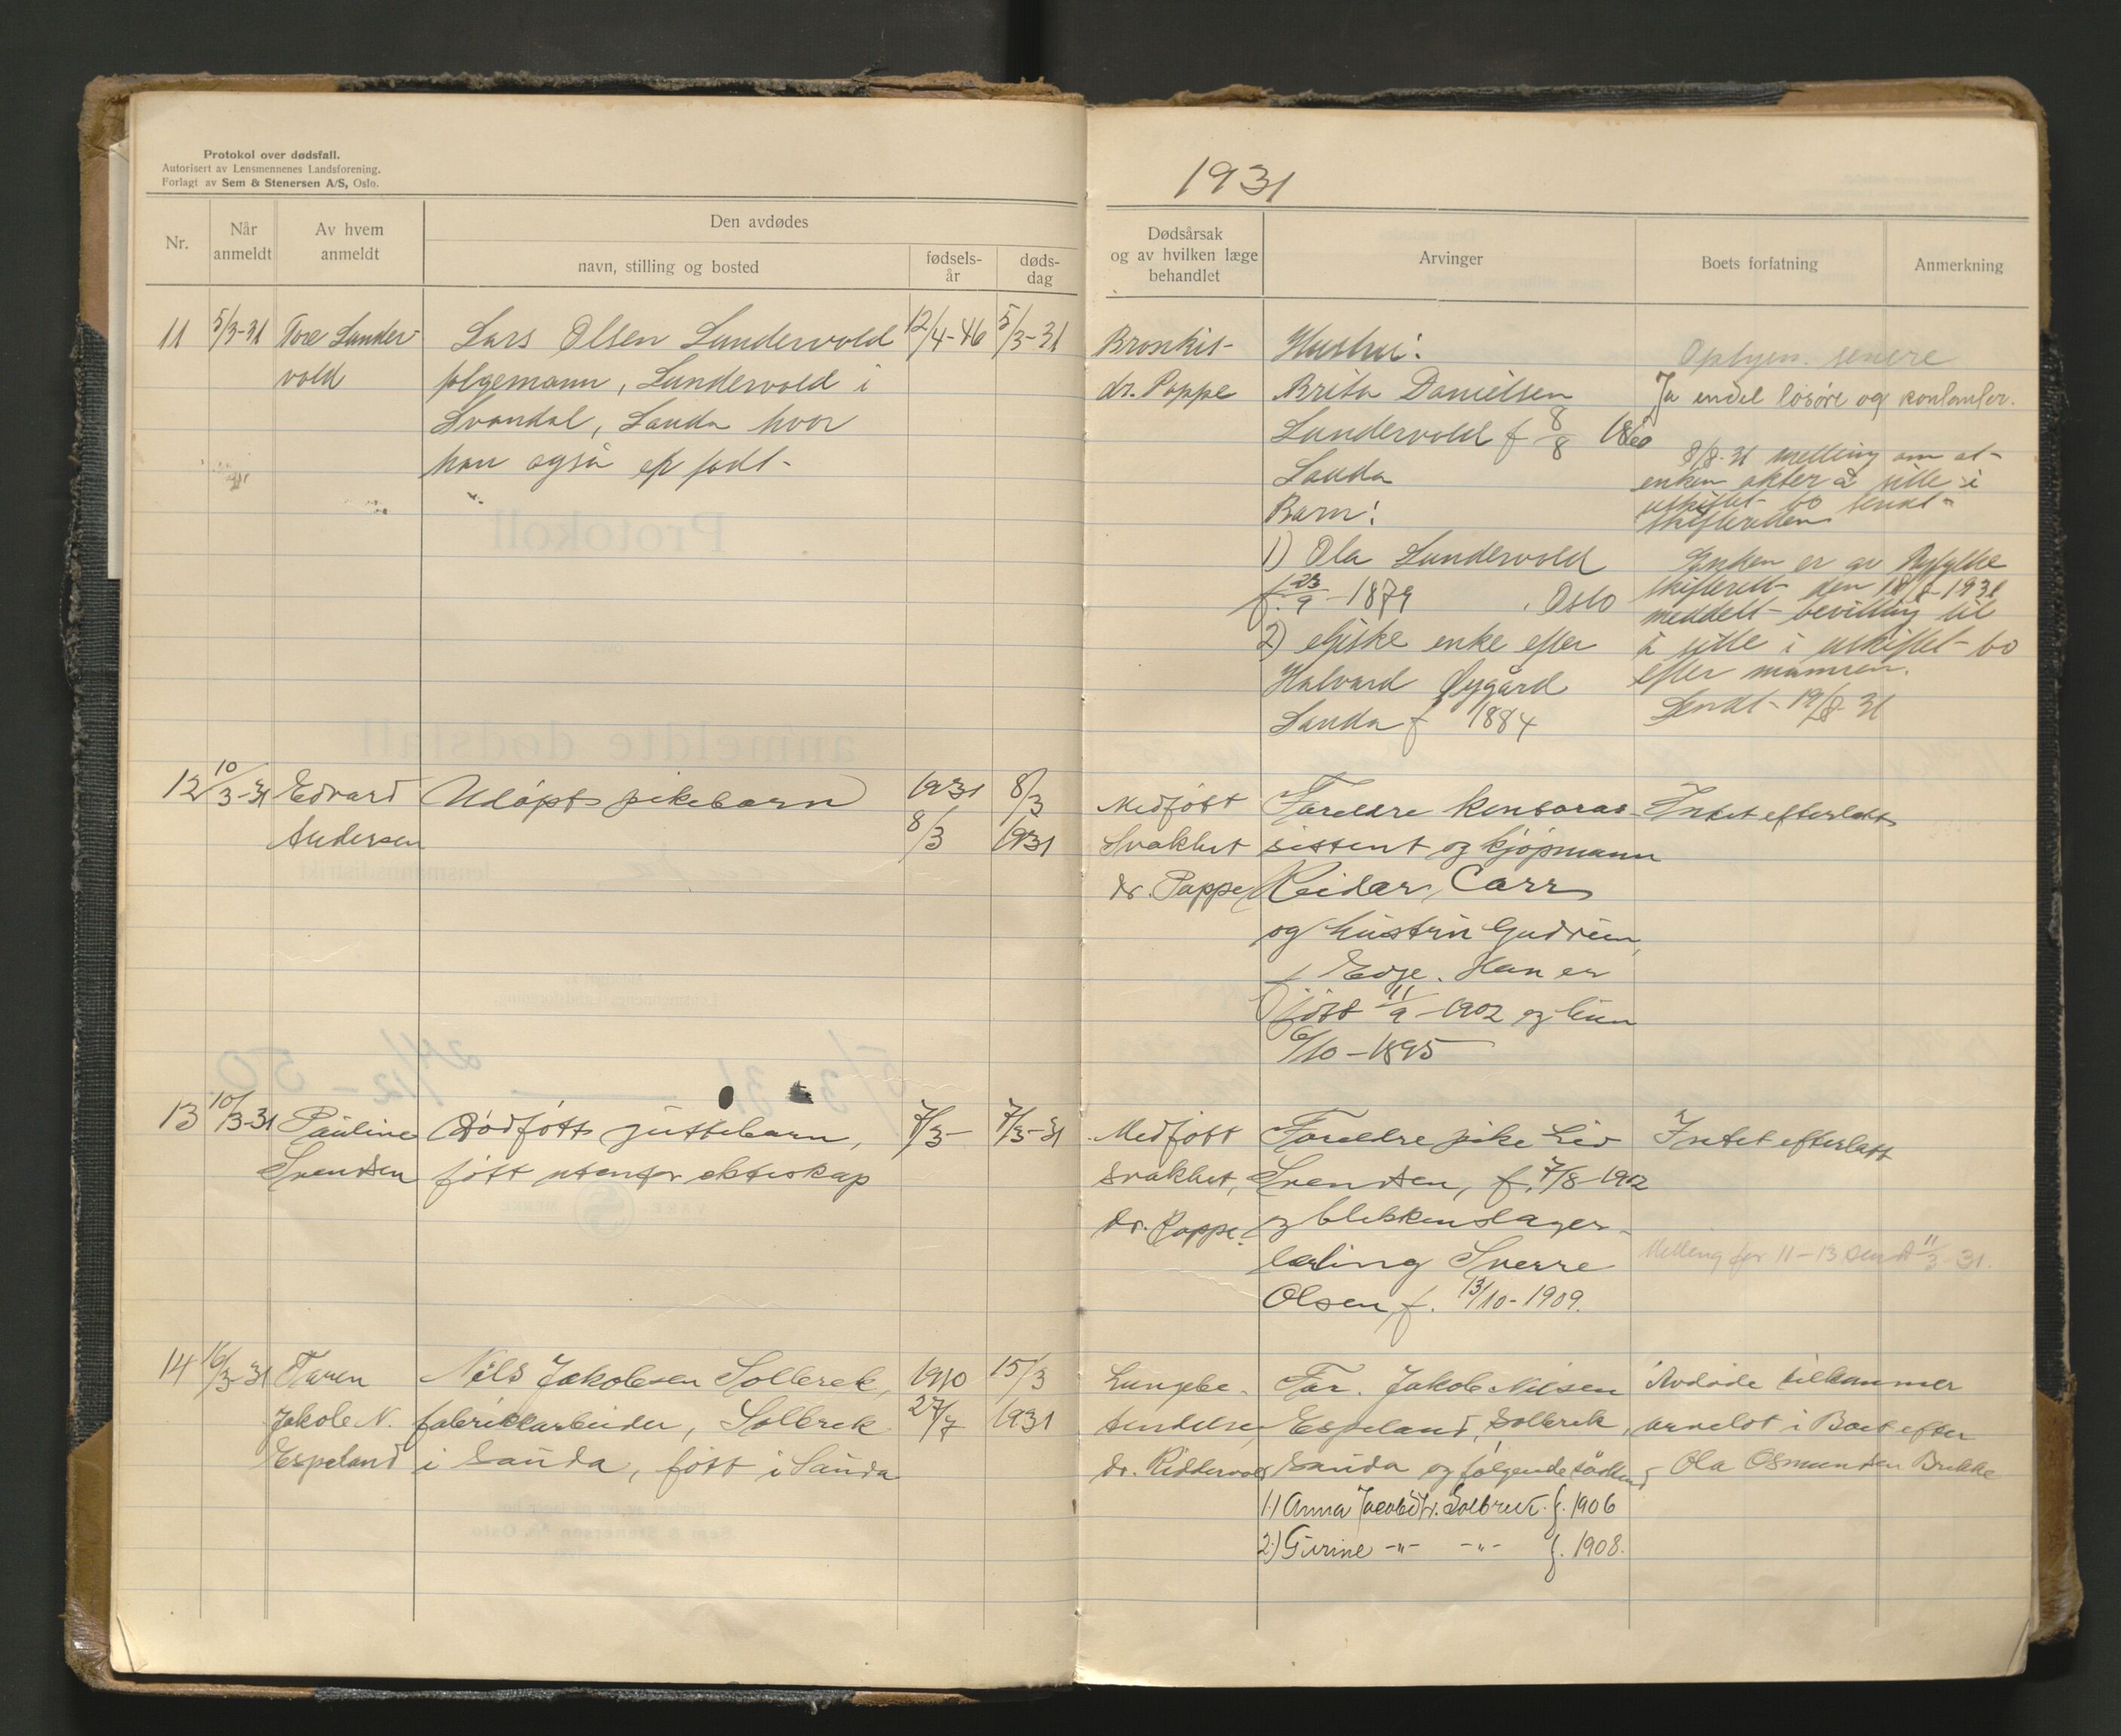 Protokol over dødsfall.
Autorisert av Lensmennenes Landsforening.
Forlagt av Sem & Stenersen A/S, Oslo.
1931
Nr.
Når anmeldt
Av hvem anmeldt
Den avdødes
navn, stilling og bosted
fødsels-
år
døds-
dag
Dødsårsak
og av hvilken læge
behandlet
Arvinger
Boets forfatning
Anmerkning
11
5/3-31
Tore Lunder-
vold
Lars Olsen Lundervold
folgemann, Lundervold i
Svandal, Sauda hvor
han også er født-
12/4-46
5/3-31
Bronkit-
dr. Poppe
Hustru:
Brita Danielsen
Lundervold f 8/8 1860
Sauda
Barn:
1) Ola Lundervold
f. 23/9-1879 Oslo
2) enke efter
Halvard Øygård
Sauda f 1884
Oplysn. senere
Ja endel løsøre og kontanter.
8/8-31 melling om at-
enken akter å sitte i
uskiftet bo sendt-
skifteretten
Enken er av Ryfylke
skifterett den 18/8-1931
meddelt bevilling til
å sitte i uskiftet bo
efter mannen.
Sendt-19/8-31
12
10/3-31
Edvard
Andersen
Udöpt pikebarn
1931
8/3
8/3
1931
Medfött
Svakhet
dr. Poppe
Foreldre kontoras-
sistent og kjöpmann
Reidar Carr
og hustru Gudrun,
f Edge. Han er
född 11/9-1902 og hun
6/10-1895
Intet efterlatt
13
10/3-31
Pauline
Svendsen
Dödfött guttebarn,
fött utenfor ekteskap
7/3-
7/3-31
Medfött
svakhet,
dr. Poppe.
Foreldre pike Liv
Svendsen, f. 7/8-1902
og blikkenslager-
lærling Sverre
Olsen, f. 13/10-1909.
Intet efterlatt
Melling for 11-13 sendt 11/3-31.
14
16/3-31
Faren
Jakob N.
Espeland
Nils Jakobsen Solbrek,
fabrikkarbeider, Solbrek
i Sauda, fött i Sauda
1910
27/7
15/3
1931
Lungebe-
tendelse,
dr. Riddervold
Far. Jakob Nilsen
Espeland, Solbrek,
Sauda og følgende södsken
1.) Anna Jacobsdtr. Solbrek f. 1906
2.) Gurine -"- -"- f. 1908.
Avdöde tilkommer
arvelot i Boet efter
Ola Osmundsen Brekke